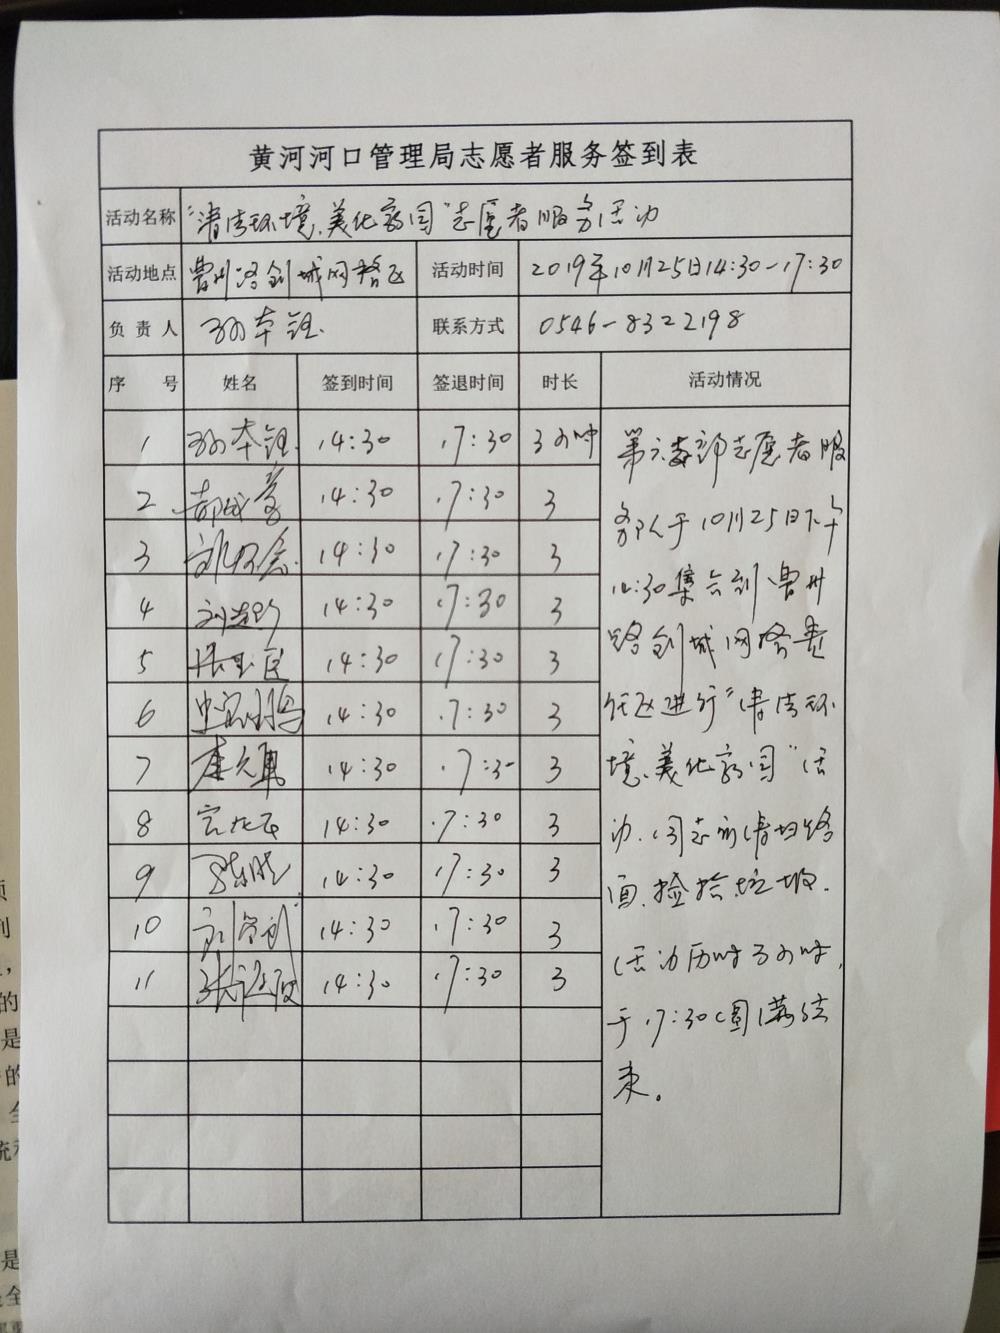 黄河河口管理局志愿者服务签到表
活动名称 "清洁环境、美化家园"志愿者服务活动
活动地点 曹州路创城网格区 活动时间 2019年10月25日14:30-17:30
负责人 孙本钰 联系方式 0546-8322198
序号 姓名 签到时间 签退时间 时长 活动情况
1 孙本钰 14:30 17:30 3小时
2 14:30 17:30 3
3 14:30 17:30 3
4 14:30 17:30 3
5 14:30 17:30 3
6 14:30 17:30 3
7 14:30 17:30 3
8 14:30 17:30 3
9 14:30 17:30 3
10 14:30 17:30 3
11 14:30 17:30 3
第六支部志愿者服
务队于10月25日下午
14:30集合到曹州
路创城网格责
任区进行"清洁环
境、美化家园"活
动.同志们清扫路
面、捡拾垃圾.
活动历时3小时,
于17:30圆满结
束。